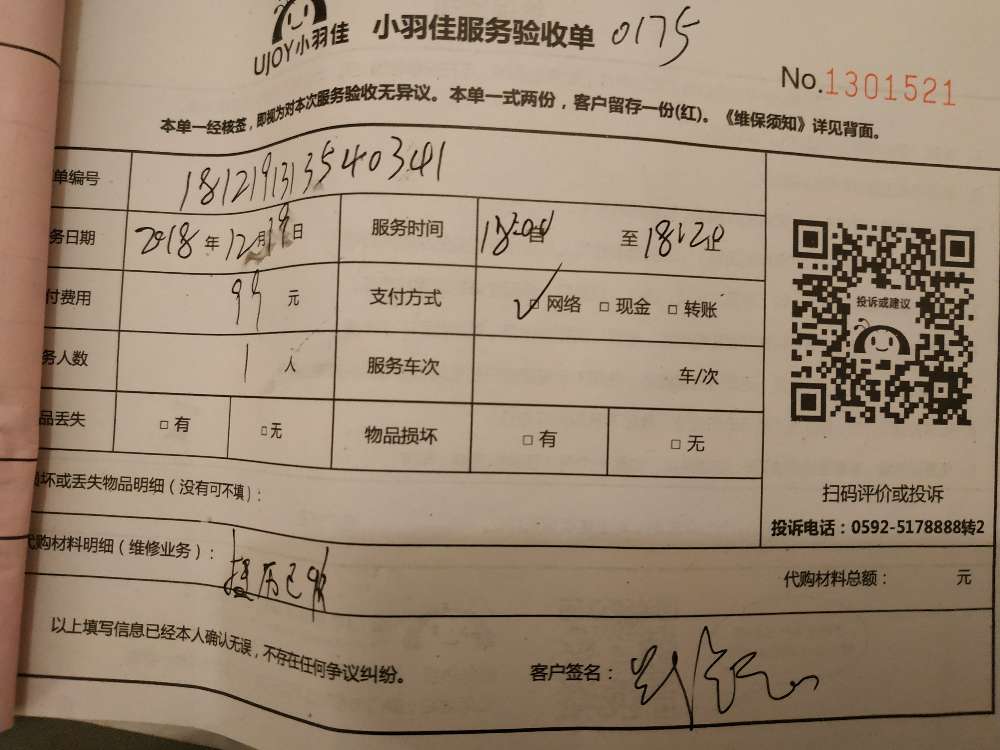 UJOY小羽佳 小羽佳服务验收单 0175
No.1301521
本单一经核签，即视为对本次服务验收无异议。本单一式两份，客户留存一份(红)。《维保须知》详见背面。
单编号 181219131354 0341
务日期 2018年12月19日 服务时间 自 至18:20止
付费用 99元 支付方式 ✓□网络 □现金 □转账
务人数 1人 服务车次 车/次
品丢失 □有 □无 物品损坏 □有 □无
投诉或建议
扫码评价或投诉
投诉电话：0592-5178888转2
损坏或丢失物品明细（没有可不填）：
代购材料明细（维修业务）：
代购材料总额： 元
以上填写信息已经本人确认无误，不存在任何争议纠纷。
客户签名：